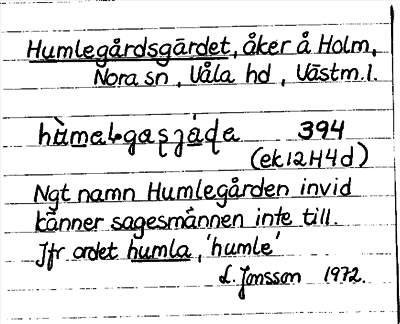 Humlegårdsgärdet, åker å Holm,
Nora sn, Våla hd, Västm.l.
394
(ek 12H4d)
Ngt namn Humlegården invid
känner sagesmannen inte till.
Jfr ordet humla, 'humle'
L. Jonsson 1972.